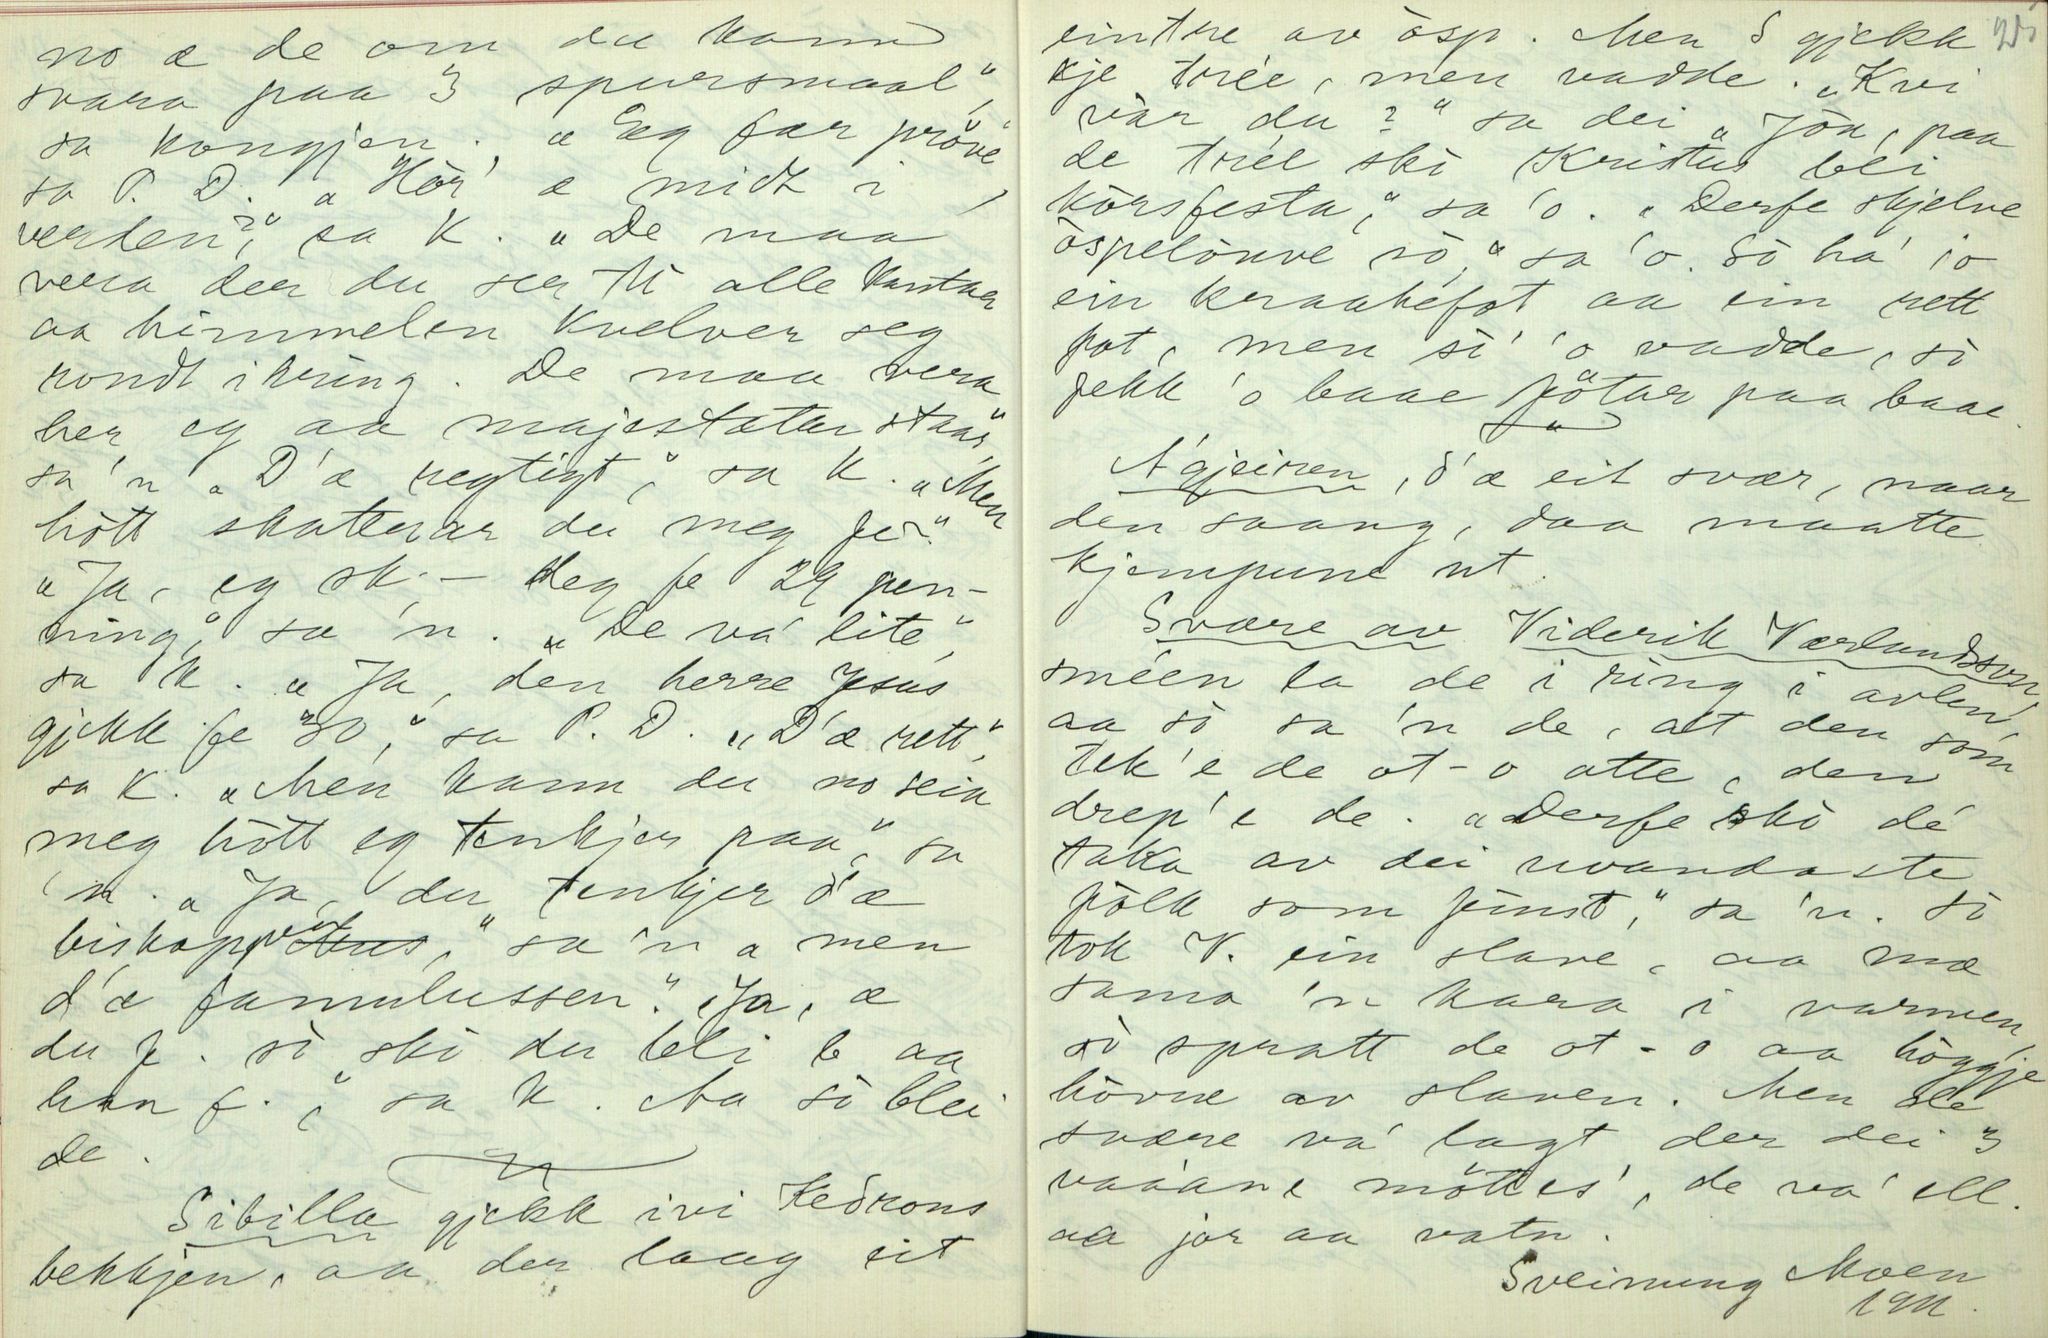 no æ de om du kann
svara paa 3 spursmaal,"
sa kongjen. „Eg fær pröve"
sa P. D. „Hòr' æ midt i
verden?", sa K. „De maa
vera der du ser ti alle kantar
aa himmelen kvelver seg
rondt ikring. De maa vera
her eg aa majestæten staar",
sa 'n „D'æ regtigt," sa K. „Men
hòtt skatterar du meg fe?"
„Ja, eg sk. – deg fe 29 pen-
ning," sa 'n. „De va' lite,"
sa K. „Ja, den herre Jesus
gjekk fe 30," sa P. D. „D'æ rett",
sa K. „Men kann du no seia
meg hòtt eg tenkjer paa," sa
'n. „Ja, du tenkjer d'æ
biskopp," sa 'n „men
d'æ famulussen." „Ja, æ
du f. sò skò du bli b aa
han f.", sa K. Aa sò blei
de.
Sibilla gjekk ivi Kedrons
bekkjen, aa der laag eit
eintre av òsp. Men S gjekk
kje tree, men vadde. „Kvi
vàr du?" sa dei „Jòa, paa
de treé skò Kristus bli
kòrsfesta," sa 'o. „Derfe skjelve
òspelöuve sò," sa 'o. Sò ha' 'o
ein kraakefot aa ein rett
fot, men si' 'o vadde, sò
fekk 'o baae fötar paa baae.
Adjeiren, d'æ eit svær, naar
den saang, daa maatte
kjempune ut.
Svære av Viderik Værlundsson,
sméen la de i ring i avlen,
aa sò sa 'n de, at den som
tek'e de ot-o atte, den
drep'e de. „Derfe skò dé
taka av dei uvandaste
fòlk som finst," sa 'n. Sò
tok V. ein slave, aa mæ
sama 'n kara i varmen,
sò spratt de ot-o aa höggje
hòvue av slaven. Men dle
svære va' lagt der dei 3
vaáane möttes', de va' ell.
aa jor aa vatn.
Sveinung Moen
1911.